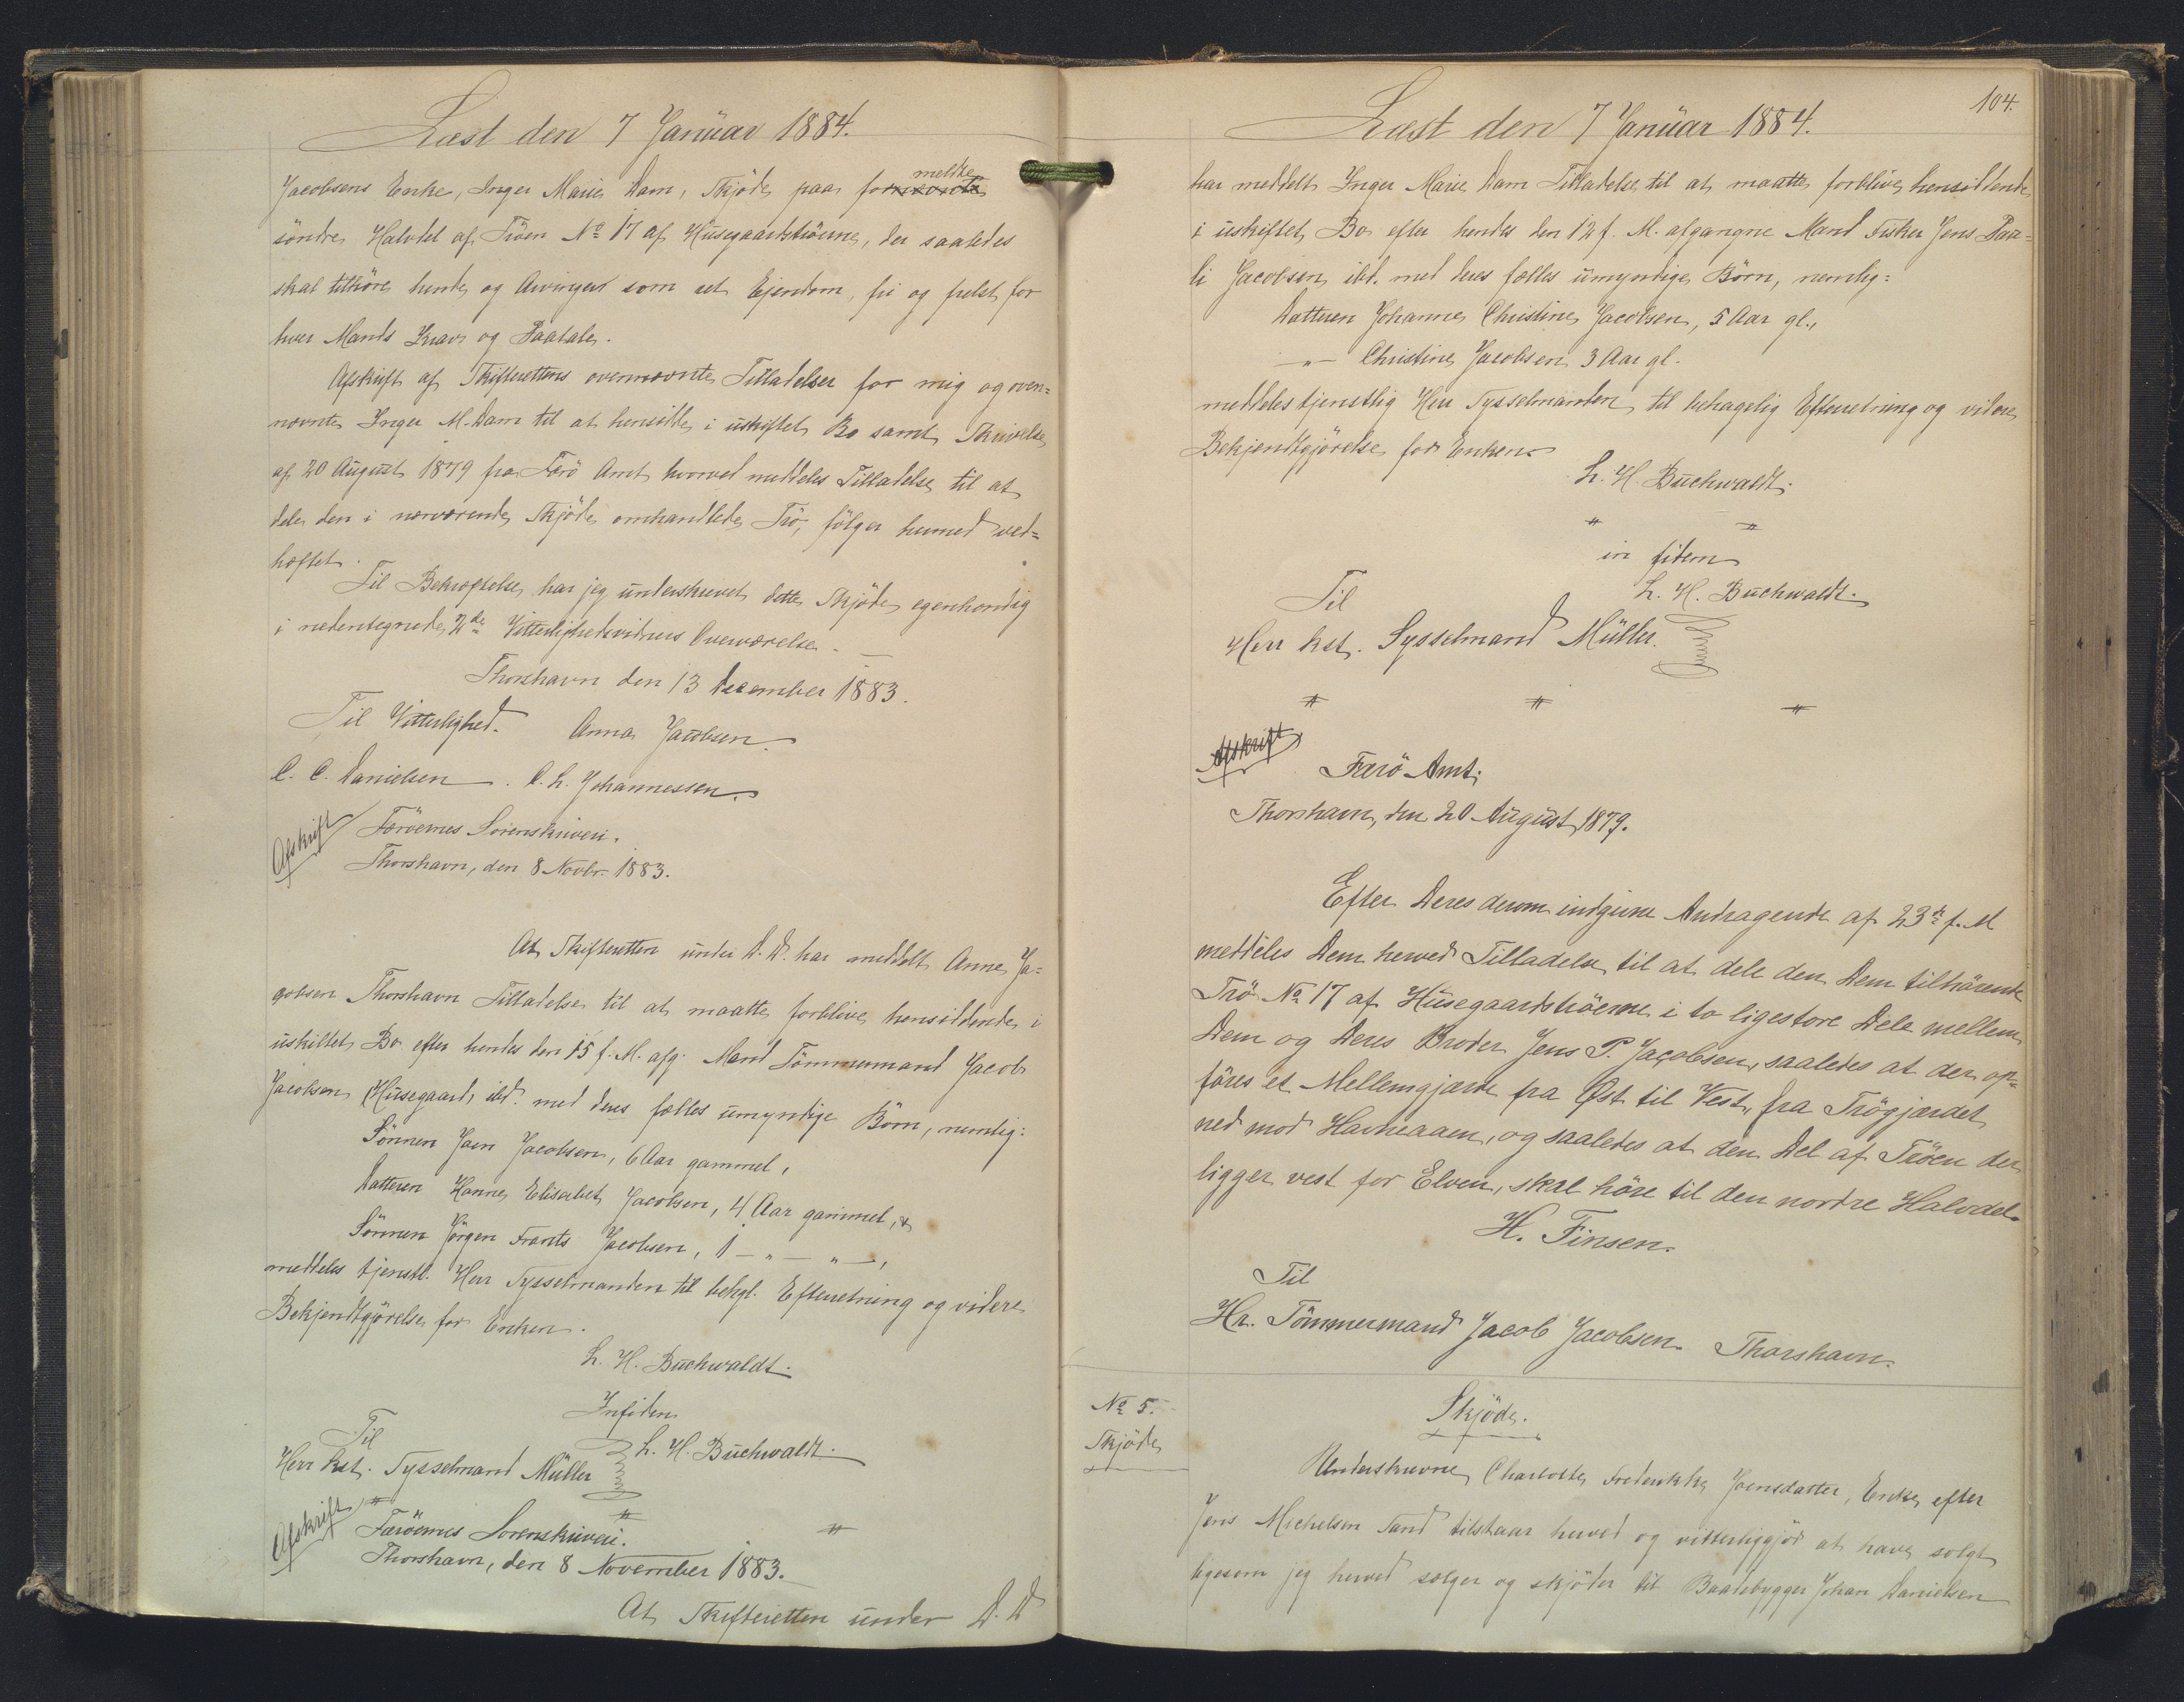 Læst den 7 Januar 1884.
Jacobsens Enke, Inger Marie Dam, Skjöde paa formeldte
söndre Halvdel af Tröen No 17 af Husegaardströerne, der saaledes
skal tilhöre hende og Arvinger som ret Ejendom, fri og frelst for
hver Mands Krav og Paatale.
Afskrift af Skifterettens overnævnte Tilladelser for mig og oven=
nævnte Inger M. Dam til at hensidde i uskiftet Bo samt Skrivelse
af 20 August 1879 fra Færö Amt hvorved meddeles Tilladelse til at
dele den i nærværende Skjöde omhandlede Trö, fölger hermed ved=
hæftet.
Til Bekræftelse har jeg underskrevet dette Skjöde egenhændig
i nedentegnede 2de Vitterlighedsvidners Overværelse.
Thorshavn den 13 December 1883.
Til Vitterlighed. Anna Jacobsen.
C. C. Danielsen. O. L. Johannessen.
Afskrift
Færöernes Sorenskriveri.
Thorshavn, den 8 Novbr. 1883.
At Skifteretten under D. D. har meddelt Anne Ja=
cobsen Thorshavn Tilladelse til at maatte forblive hensiddende i
uskiftet Bo efter hendes den 15 f. M. afg. Mand Tömmermand Jacob
Jacobsen Husegaard, ibd. med deres fælles umyndige Börn, nemlig:
Sönnen Joen Jacobsen, 6 Aar gammel,
Datteren Hanne Elisabet Jacobsen, 4 Aar gammel, &
Sönnen Jörgen Frants Jacobsen, 1 — " — " —,
meddeles tjenstl. Herr Sysselmanden til behgl. Efterretning og videre
Bekjendtgjörelse for Enken.
L. H. Buchwaldt.
In fidem
L. H. Buchwaldt.
Til
Herr kst. Sysselmand Müller
Afskrift
Færöernes Sorenskriveri.
Thorshavn, den 8 November 1883.
At Skifteretten under D. D
104.
Læst den 7 Januar 1884.
har meddelt Inger Marie Dam Tilladelse til at maatte forblive hensiddende
i uskiftet Bo efter hendes den 12 f. M. afgangne Mand Fisker Jens Paa=
li Jacobsen ibd. med deres fælles umyndige Börn, nemlig:
Datteren Johanne Christine Jacobsen, 5 Aar gl.,
— " — Christine Jacobsen 3 Aar gl.
meddeles tjenstlig Herr Sysselmanden til behagelig Efterretning og videre
Bekjendtgjörelse for Enken.
L. H. Buchwaldt.
in fidem
L. H. Buchwaldt.
Til
Herr kst. Sysselmand Müller.
Afskrift
Færö Amt,
Thorshavn, den 20 August 1879.
Efter Deres derom indgivne Andragende af 23de f. M
meddeles Dem herved Tilladelse til at dele den Dem tilhörende
Trö No 17 af Husegaardströerne i to ligestore Dele mellem
Dem og Deres Broder Jens P. Jacobsen, saaledes at der op=
föres et Mellemgjærde fra Öst til Vest, fra Trögjærdet
ned mod Havneaaen, og saaledes at den Del af Tröen der
ligger vest for Elven, skal höre til den nordre Halvdel.
H. Finsen.
Til
Hr. Tömmermand Jacob Jacobsen Thorshavn.
No 5.
Skjöde
Skjöde.
Underskrevne Charlotte Frederikke Joensdatter, Enke efter
Jens Michelsen Sand tilstaar herved og vitterliggjör at have solgt
ligesom jeg herved sælger og skjöder til Baadebygger Johan Danielsen